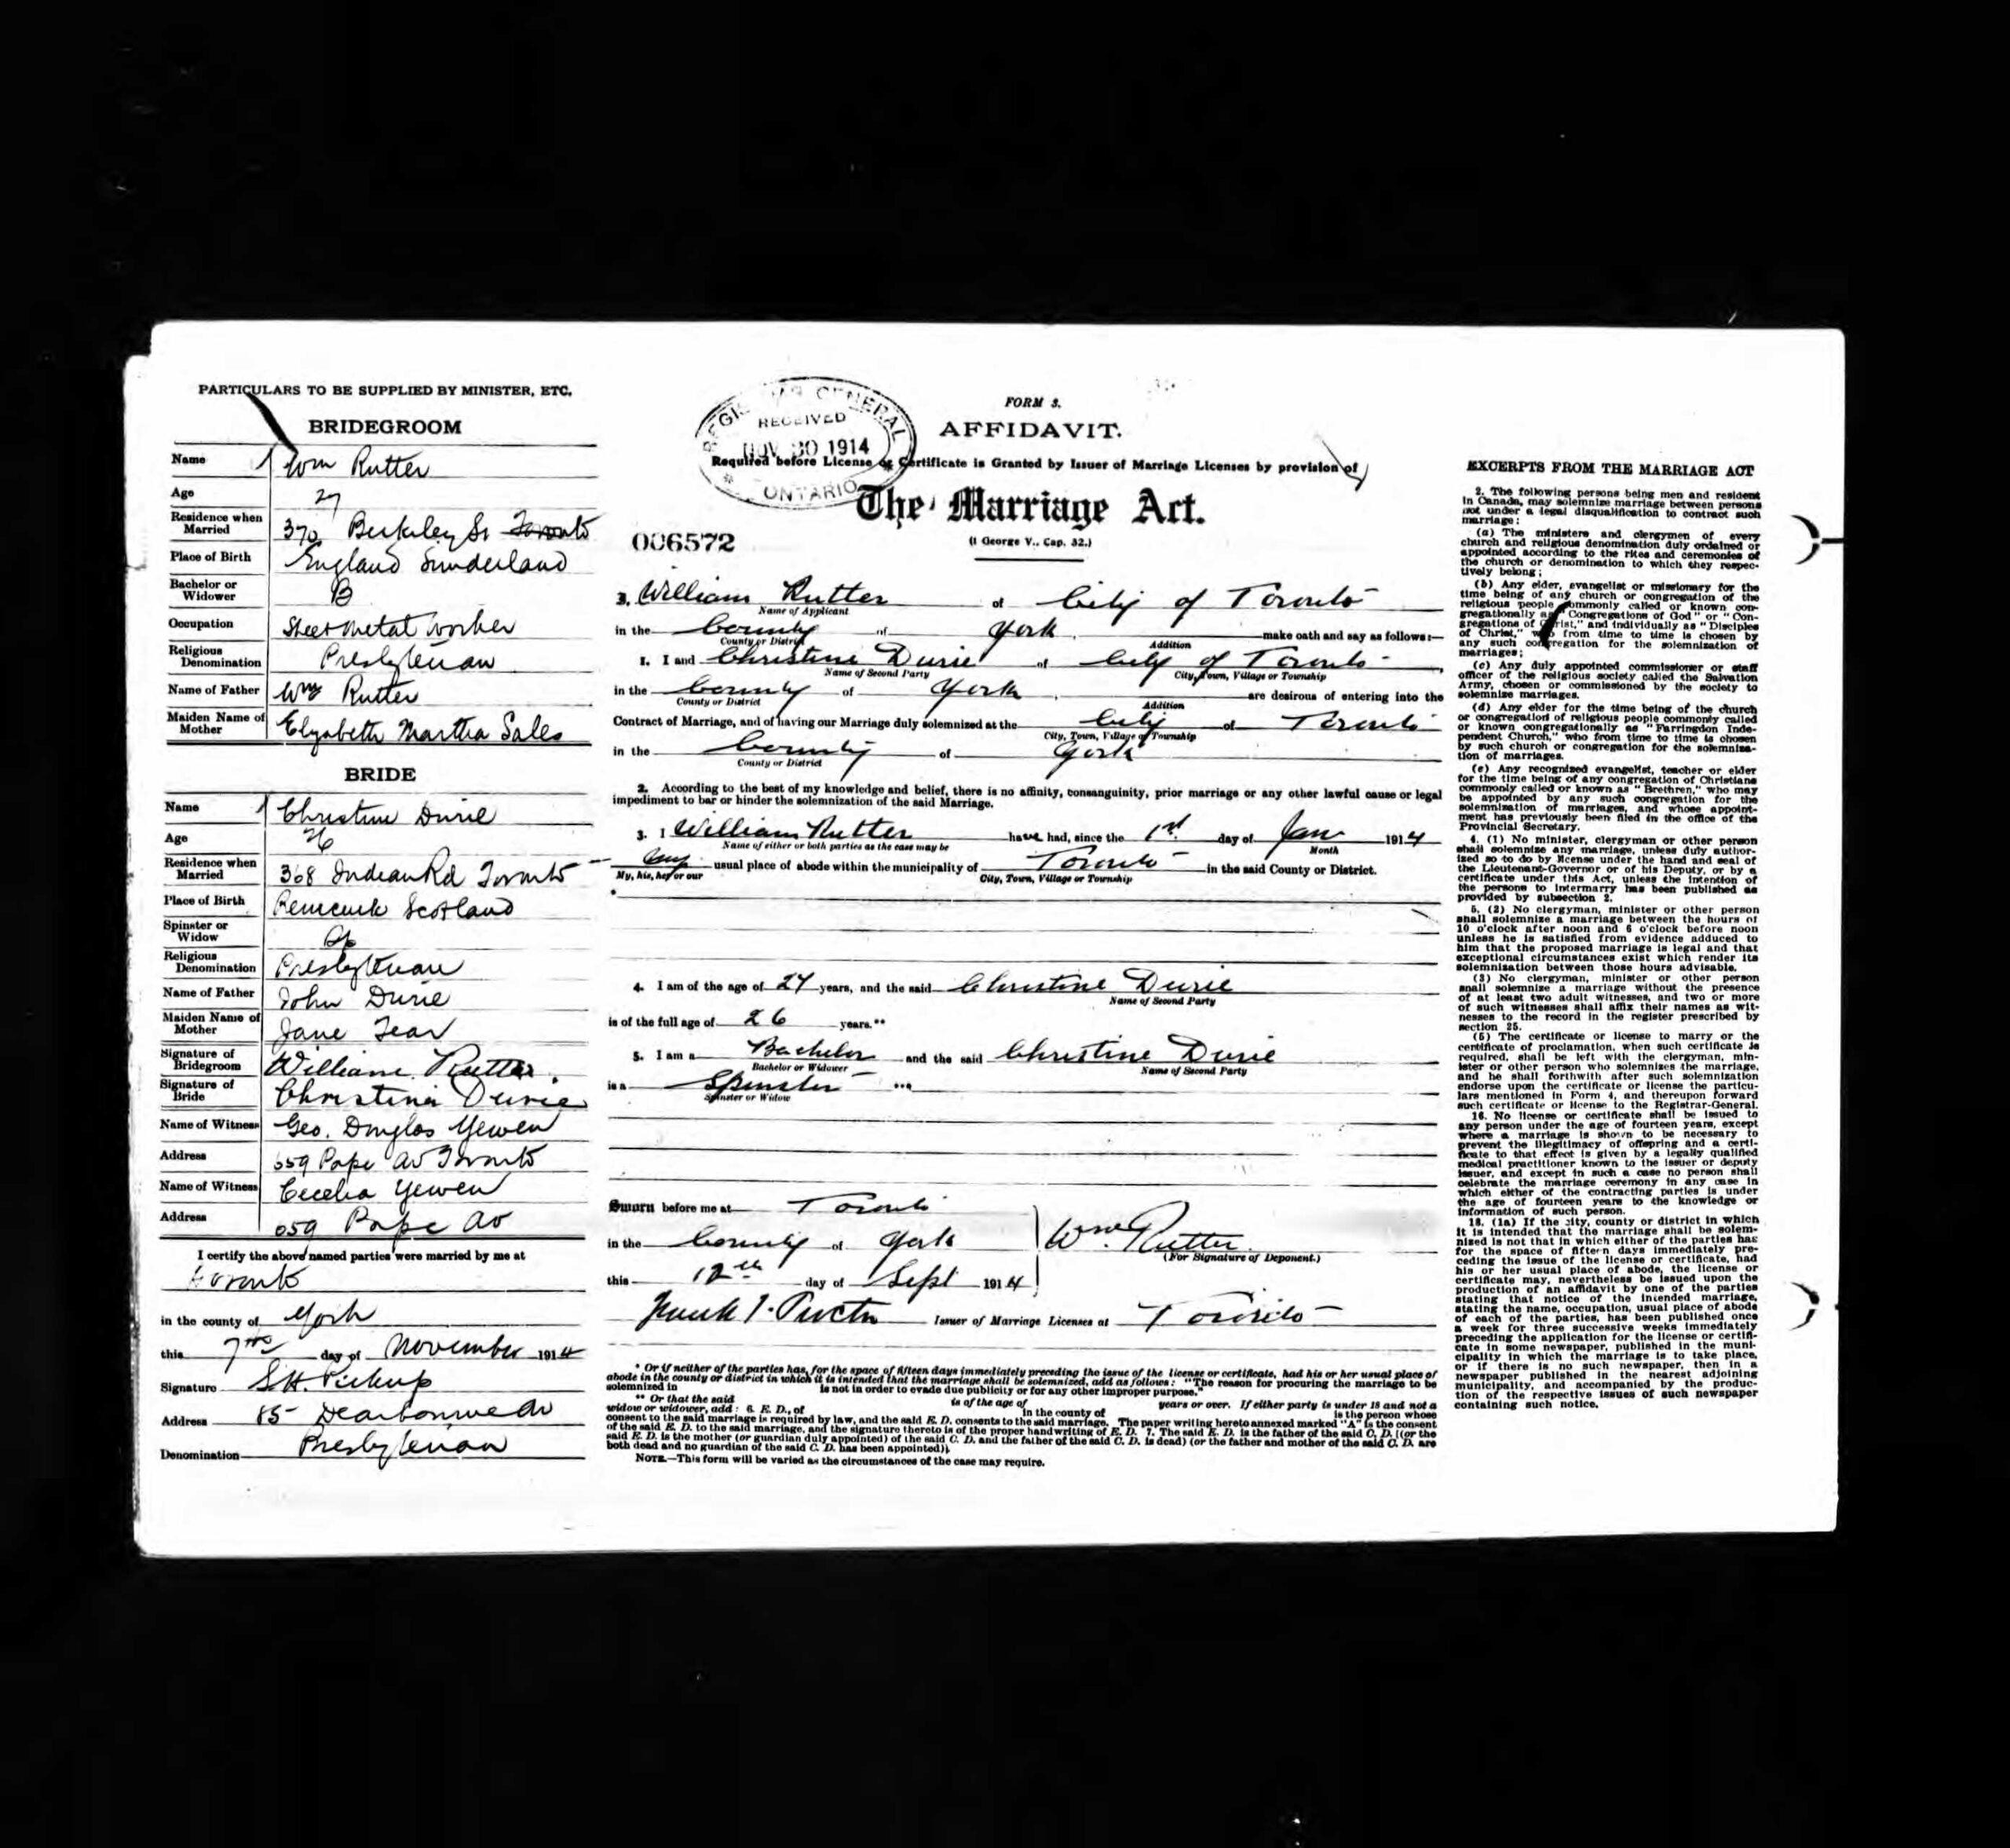 PARTICULARS TO BE SUPPLIED BY MINISTER, ETC.
BRIDEGROOM
Name Wm Rutter
Age 27
Residence when Married 370 Berkeley St Toronto
Place of Birth England Sunderland
Bachelor or Widower B
Occupation Sheet Metal Worker
Religious Denomination Presbyterian
Name of Father Wm Rutter
Maiden Name of Mother Elyzabeth Martha Sales
BRIDE
Name Christine Durie
Age 26
Residence when Married 368 Indian Rd Toronto
Place of Birth Scotland
Spinster or Widow Sp
Religious Denomination Presbyterian
Name of Father John Durie
Maiden Name of Mother Jane Tear
Signature of Bridegroom William Rutter.
Signature of Bride Christina Durie
Name of Witness Geo. Douglas Yewen
Address 659 Pape Av Toronto
Name of Witness Cecelia Yewen
Address 659 Pape Av
I certify the above named parties were married by me at
Toronto
in the county of York
this 7th day of November 1914
Signature S.H. Pickup
Address 85 Dearbourne Av
Denomination Presbyterian
REGISTRAR GENERAL
RECEIVED
NOV 30 1914
ONTARIO
FORM 3.
AFFIDAVIT.
Required before License or Certificate is Granted by Issuer of Marriage Licenses by provision of
The Marriage Act.
006572
(1 George V., Cap. 32.)
William Rutter of City of Toronto
Name of Applicant
in the County of York make oath and say as follows:—
County or District Addition
1. I and Christine Durie of City of Toronto
Name of Second Party City, Town, Village or Township
in the County of York are desirous of entering into the
County or District Addition
Contract of Marriage, and of having our Marriage duly solemnized at the City of Toronto
City, Town, Village or Township
in the County of York
County or District
2. According to the best of my knowledge and belief, there is no affinity, consanguinity, prior marriage or any other lawful cause or legal
impediment to bar or hinder the solemnization of the said Marriage.
3. I William Rutter have had, since the 1st day of Jan 1914
Name of either or both parties as the case may be Month
my usual place of abode within the municipality of Toronto in the said County or District.
My, his, her or our City, Town, Village or Township
*
4. I am of the age of 27 years, and the said Christine Durie
Name of Second Party
is of the full age of 26 years.**
5. I am a Bachelor and the said Christine Durie
Bachelor or Widower Name of Second Party
is a Spinster ***
Spinster or Widow
Sworn before me at Toronto
in the County of York
Wm Rutter
(For Signature of Deponent.)
this 12th day of Sept 1914
Issuer of Marriage Licenses at Toronto
* Or if neither of the parties has, for the space of fifteen days immediately preceding the issue of the license or certificate, had his or her usual place of
abode in the county or district in which it is intended that the marriage shall be solemnized, add as follows: "The reason for procuring the marriage to be
solemnized in is not in order to evade due publicity or for any other improper purpose."
** Or that the said is of the age of years or over. If either party is under 18 and not a
widow or widower, add: 6. E. D., of in the county of is the person whose
consent to the said marriage is required by law, and the said E. D. consents to the said marriage. The paper writing hereto annexed marked "A" is the consent
of the said E. D. to the said marriage, and the signature thereto is of the proper handwriting of E. D. 7. The said E. D. is the father of the said C. D. [(or the
said E. D. is the mother (or guardian duly appointed) of the said C. D. and the father of the said C. D. is dead) (or the father and mother of the said C. D. are
both dead and no guardian of the said C. D. has been appointed)].
NOTE.—This form will be varied as the circumstances of the case may require.
EXCERPTS FROM THE MARRIAGE ACT
2. The following persons being men and resident
in Canada, may solemnize marriage between persons
not under a legal disqualification to contract such
marriage:
(a) The ministers and clergymen of every
church and religious denomination duly ordained or
appointed according to the rites and ceremonies of
the church or denomination to which they respec-
tively belong;
(b) Any elder, evangelist or missionary for the
time being of any church or congregation of the
religious people commonly called or known con-
gregationally as "Congregations of God" or "Con-
gregations of Christ," and individually as "Disciples
of Christ," who from time to time is chosen by
any such congregation for the solemnization of
marriages;
(c) Any duly appointed commissioner or staff
officer of the religious society called the Salvation
Army, chosen or commissioned by the society to
solemnize marriages.
(d) Any elder for the time being of the church
or congregation of religious people commonly called
or known congregationally as "Farringdon Inde-
pendent Church," who from time to time is chosen
by such church or congregation for the solemniza-
tion of marriages.
(e) Any recognized evangelist, teacher or elder
for the time being of any congregation of Christians
commonly called or known as "Brethren," who may
be appointed by any such congregation for the
solemnization of marriages, and whose appoint-
ment has previously been filed in the office of the
Provincial Secretary.
4. (1) No minister, clergyman or other person
shall solemnize any marriage, unless duly author-
ized so to do by license under the hand and seal of
the Lieutenant-Governor or of his Deputy, or by a
certificate under this Act, unless the intention of
the persons to intermarry has been published as
provided by subsection 2.
5. (2) No clergyman, minister or other person
shall solemnize a marriage between the hours of
10 o'clock after noon and 6 o'clock before noon
unless he is satisfied from evidence adduced to
him that the proposed marriage is legal and that
exceptional circumstances exist which render its
solemnization between those hours advisable.
(3) No clergyman, minister or other person
shall solemnize a marriage without the presence
of at least two adult witnesses, and two or more
of such witnesses shall affix their names as wit-
nesses to the record in the register prescribed by
section 25.
(5) The certificate or license to marry or the
certificate of proclamation, when such certificate is
required, shall be left with the clergyman, min-
ister or other person who solemnizes the marriage,
and he shall forthwith after such solemnization
endorse upon the certificate or license the particu-
lars mentioned in Form 4, and thereupon forward
such certificate or license to the Registrar-General.
16. No license or certificate shall be issued to
any person under the age of fourteen years, except
where a marriage is shown to be necessary to
prevent the illegitimacy of offspring and a certi-
ficate to that effect is given by a legally qualified
medical practitioner known to the issuer or deputy
issuer, and except in such a case no person shall
celebrate the marriage ceremony in any case in
which either of the contracting parties is under
the age of fourteen years to the knowledge or
information of such person.
18. (1a) If the city, county or district in which
it is intended that the marriage shall be solem-
nized is not that in which either of the parties has
for the space of fifteen days immediately pre-
ceding the issue of the license or certificate, had
his or her usual place of abode, the license or
certificate may, nevertheless be issued upon the
production of an affidavit by one of the parties
stating that notice of the intended marriage,
stating the name, occupation, usual place of abode
of each of the parties, has been published once
a week for three successive weeks immediately
preceding the application for the license or certifi-
cate in some newspaper, published in the muni-
cipality in which the marriage is to take place,
or if there is no such newspaper, then in a
newspaper published in the nearest adjoining
municipality, and accompanied by the produc-
tion of the respective issues of such newspaper
containing such notice.